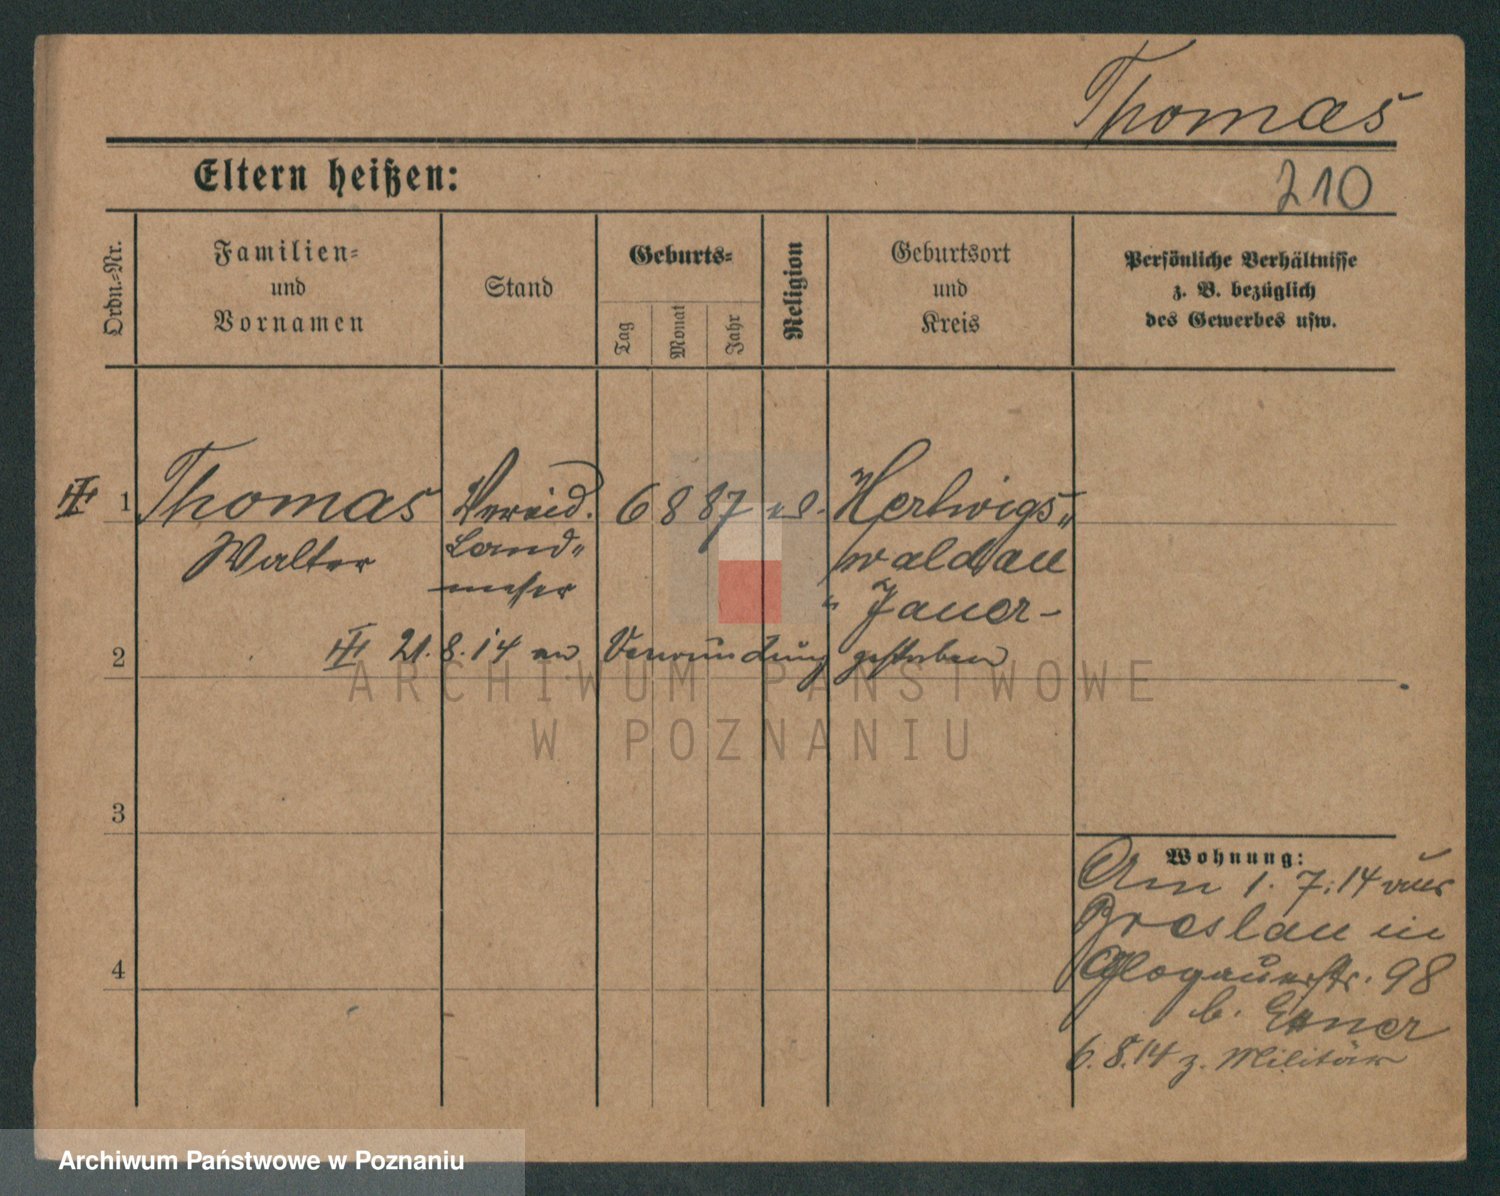 Thomas
Eltern heißen:
210
Ordn.=Nr.
Familien=
und
Vornamen
Stand
Geburts=
Tag
Monat
Jahr
Religion
Geburtsort
und
Kreis
Persönliche Verhältnisse
z. B. bezüglich
des Gewerbes usw.
1
Thomas
Walter
Vereid.
Land„
messer
6 8 87
Hertwigs„
waldau
„ Jauer-
2
21.8.14 an Verwundung gestorben
3
4
Wohnung:
Am 1.7.14 aus
Breslau in
Glogauerstr. 98
b.
6.8.14 z. Militär
ARCHIWUM PAŃSTWOWE
W POZNANIU
Archiwum Państwowe w Poznaniu